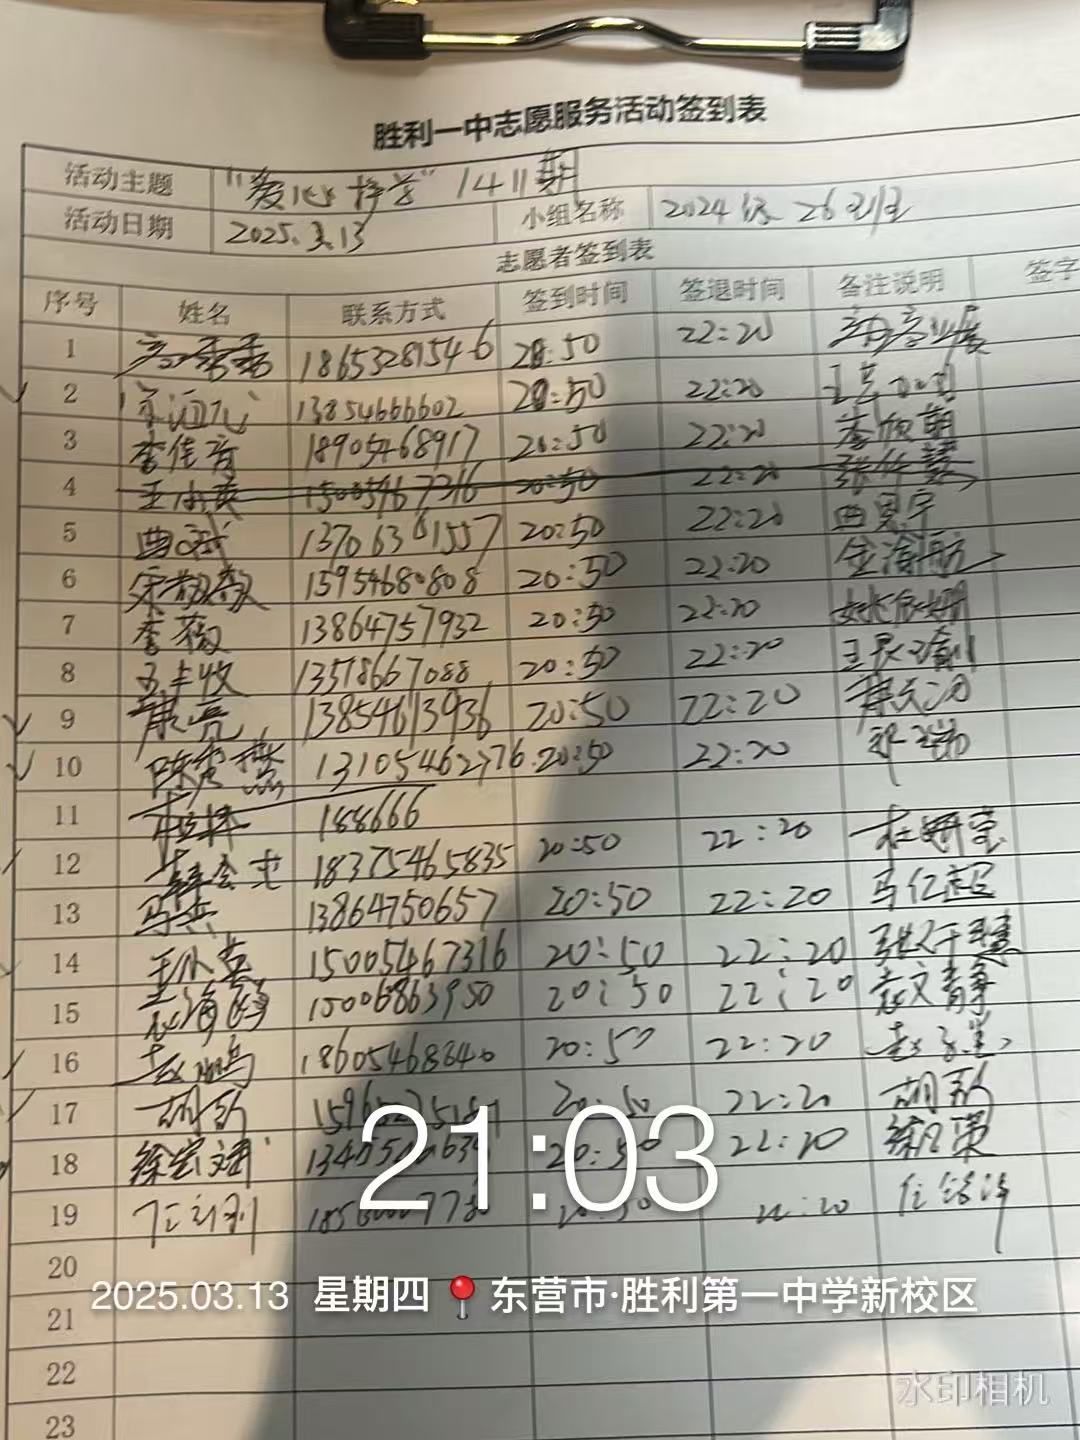 胜利一中志愿服务活动签到表
活动主题 "爱心接学" 1411期
活动日期 2025.3.13 小组名称 2024级 26
志愿者签到表
序号 姓名 联系方式 签到时间 签退时间 备注说明 签字
1 18653281546 20:50 22:20
2 13854666602 20:50 22:20
3 李佳音 18905468917 20:50 22:20
4 王小英 15005467316 20:50 22:20 张仟慧
5 曲文武 13706361557 20:50 22:20 曲思宇
6 15954680808 20:50 22:20 金海航
7 李薇 13864757932 20:50 22:20
8 王丰收 13518667088 20:50 22:20
9 康亮 13854613936 20:50 22:20
10 13105462776 20:50 22:20
11 188666
12 18375465835 20:50 22:20 杜妍莹
13 马兵 13864750657 20:50 22:20 马仁超
14 王小英 15005467316 20:50 22:20 张仟慧
15 15006863950 20:50 22:20 袁文静
16 赵鹏 18605468840 20:50 22:20
17 20:50 22:20
18 徐宏斌 20:50 22:20
19 20:50 22:20
20
21
22
23
21:03
2025.03.13 星期四 东营市·胜利第一中学新校区
水印相机